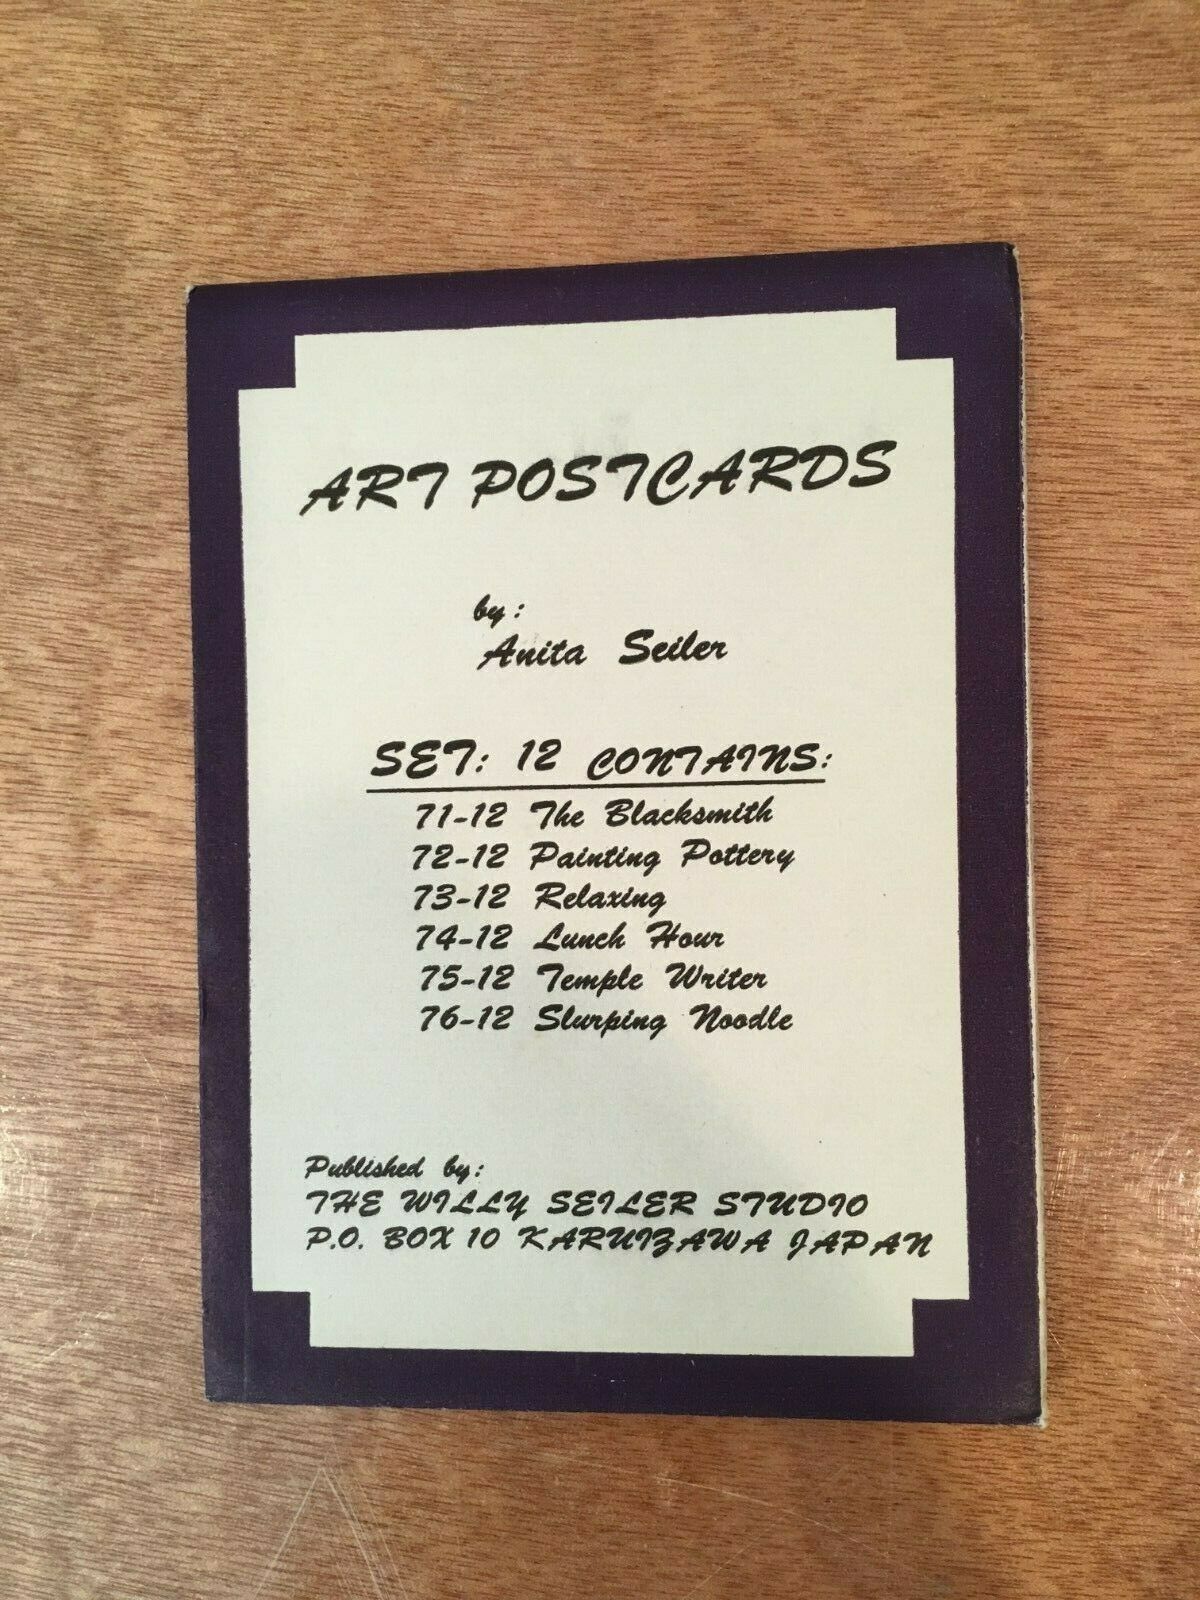 ART POSTCARDS
by:
Anita Seiler
SET: 12 CONTAINS:
71-12 The Blacksmith
72-12 Painting Pottery
73-12 Relaxing
74-12 Lunch Hour
75-12 Temple Writer
76-12 Slurping Noodle
Published by:
THE WILLY SEILER STUDIO
P.O. BOX 10 KARUIZAWA JAPAN